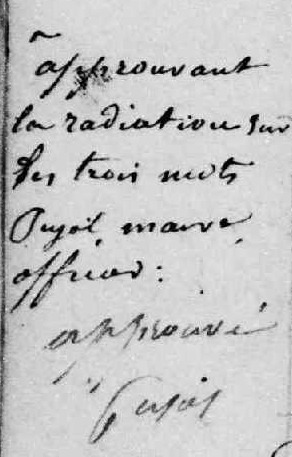 approuvant
la radiation sur
les trois mots
Pujol maire
officier :
approuvé
Pujol